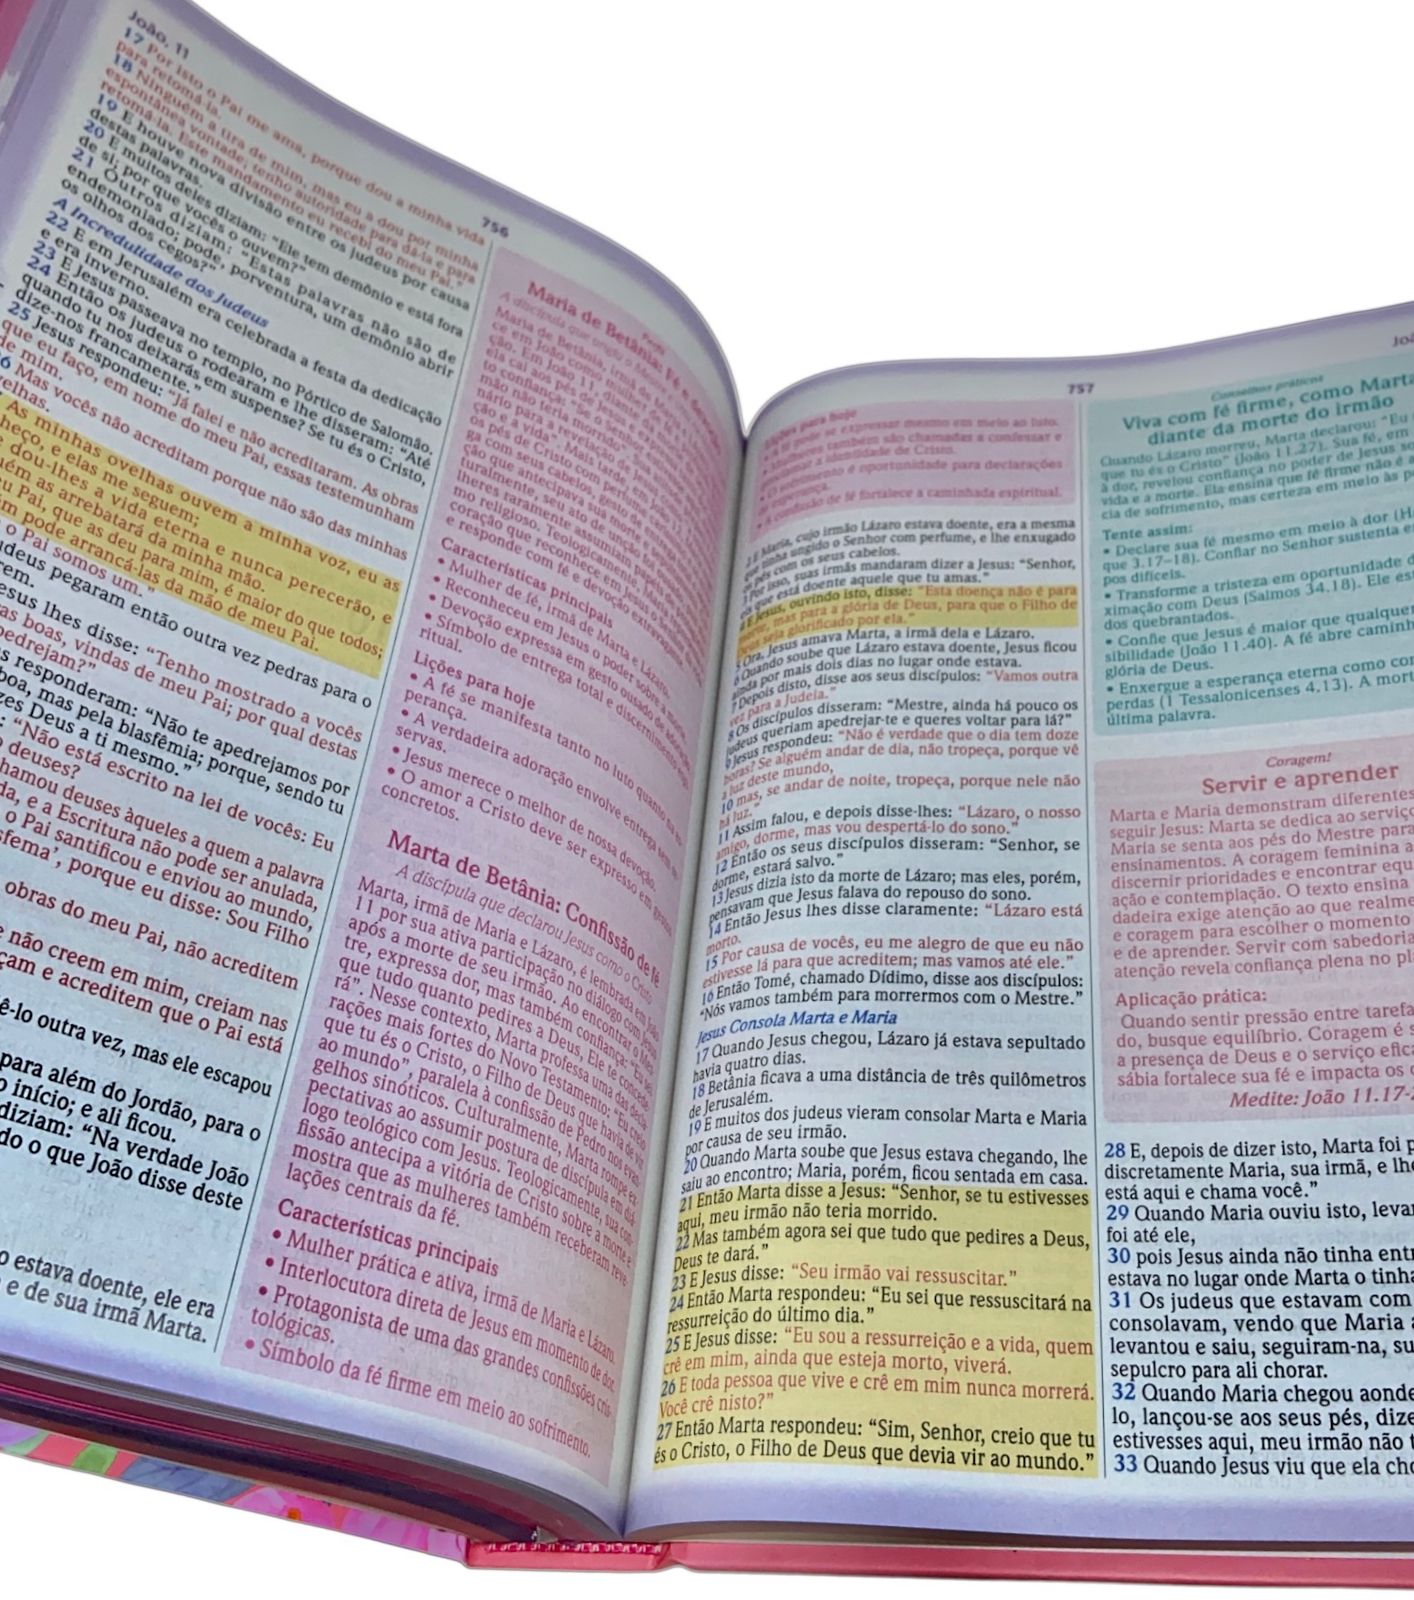 João, 11
17 Por isto o Pai me ama, porque dou a minha vida
para retomá-la.
18 Ninguém a tira de mim, mas eu a dou por minha
espontânea vontade; tenho autoridade para dá-la e para
retomá-la. Este mandamento eu recebi do meu Pai.”
19 E houve nova divisão entre os judeus por causa
destas palavras.
20 E muitos deles diziam: “Ele tem demônio e está fora
de si; por que vocês o ouvem?”
21 Outros diziam: “Estas palavras não são de
endemoniado; pode, porventura, um demônio abrir
os olhos dos cegos?”
A Incredulidade dos Judeus
22 E em Jerusalém era celebrada a festa da dedicação
e era inverno.
23 E Jesus passeava no templo, no Pórtico de Salomão.
24 Então os judeus o rodearam e lhe disseram: “Até
quando tu nos deixarás em suspense? Se tu és o Cristo,
dize-nos francamente.”
25 Jesus respondeu: “Já falei e não acreditaram. As obras
que eu faço, em nome do meu Pai, essas testemunham
de mim.
6 Mas vocês não acreditam porque não são das minhas
velhas.
As minhas ovelhas ouvem a minha voz, eu as
heço, e elas me seguem;
dou-lhes a vida eterna e nunca perecerão, e
uém as arrebatará da minha mão.
u Pai, que as deu para mim, é maior do que todos;
m pode arrancá-las da mão de meu Pai.
o Pai somos um.”
udeus pegaram então outra vez pedras para o
rem.
esus lhes disse: “Tenho mostrado a vocês
as boas, vindas de meu Pai; por qual destas
pedrejam?”
s responderam: “Não te apedrejamos por
boa, mas pela blasfêmia; porque, sendo tu
zes Deus a ti mesmo.”
: “Não está escrito na lei de vocês: Eu
deuses?
hamou deuses àqueles a quem a palavra
da, e a Escritura não pode ser anulada,
o Pai santificou e enviou ao mundo,
sfema’, porque eu disse: Sou Filho
obras do meu Pai, não acreditem
e não creem em mim, creiam nas
çam e acreditem que o Pai está
ê-lo outra vez, mas ele escapou
para além do Jordão, para o
o início; e ali ficou.
diziam: “Na verdade João
do o que João disse deste
o estava doente, ele era
e de sua irmã Marta.
756
Maria de Betânia: Fé e
A discípula que ungiu o
Maria de Betânia, irmã de
ce em João como mulher de
ção. Em João 11, diante da
ela cai aos pés de Jesus e
to confiança: “Se o Senhor
mão não teria morrido”
nário para a revelação de Jesus como
ção e a vida”. Mais tarde, em João
os pés de Cristo com perfume
ga com seus cabelos, gesto
ção que antecipava a sua morte
turalmente, seu ato de unção
lheres raramente assumiam papéis
mo religioso. Teologicamente, Maria
coração que reconhece em Jesus o
e responde com fé e devoção
Características principais
• Mulher de fé, irmã de Marta e Lázaro.
• Reconheceu em Jesus o poder sobre a morte.
• Devoção expressa em gesto ousado de adoração.
• Símbolo de entrega total e discernimento
ritual.
Lições para hoje
• A fé se manifesta tanto no luto quanto na
perança.
• A verdadeira adoração envolve entrega sem
servas.
• Jesus merece o melhor de nossa devoção.
• O amor a Cristo deve ser expresso em gestos
concretos.
Marta de Betânia: Confissão de fé
A discípula que declarou Jesus como o Cristo
Marta, irmã de Maria e Lázaro, é lembrada em João
11 por sua ativa participação no diálogo com Jesus
após a morte de seu irmão. Ao encontrar o Mes-
tre, expressa dor, mas também confiança: “Eu sei
que tudo quanto pedires a Deus, Ele te concede-
rá”. Nesse contexto, Marta professa uma das decla-
rações mais fortes do Novo Testamento: “Eu creio
que tu és o Cristo, o Filho de Deus que havia de vir
ao mundo”, paralela à confissão de Pedro nos evan-
gelhos sinóticos. Culturalmente, Marta rompe ex-
pectativas ao assumir postura de discípula em diá-
logo teológico com Jesus. Teologicamente, sua con-
fissão antecipa a vitória de Cristo sobre a morte e
mostra que as mulheres também receberam reve-
lações centrais da fé.
Características principais
• Mulher prática e ativa, irmã de Maria e Lázaro.
• Interlocutora direta de Jesus em momento de dor.
• Protagonista de uma das grandes confissões cris-
tológicas.
• Símbolo da fé firme em meio ao sofrimento.
757
Lições para hoje
pode se expressar mesmo em meio ao luto.
Mulheres também são chamadas a confessar e
a identidade de Cristo.
• O sofrimento é oportunidade para declarações
esperança.
• A confissão de fé fortalece a caminhada espiritual.
2 E Maria, cujo irmão Lázaro estava doente, era a mesma
que tinha ungido o Senhor com perfume, e lhe enxugado
os pés com os seus cabelos.
3 Por isso, suas irmãs mandaram dizer a Jesus: “Senhor,
eis que está doente aquele que tu amas.”
4 E Jesus, ouvindo isto, disse: “Esta doença não é para
morte, mas para a glória de Deus, para que o Filho de
Deus seja glorificado por ela.”
5 Ora, Jesus amava Marta, a irmã dela e Lázaro.
6 Quando soube que Lázaro estava doente, Jesus ficou
ainda por mais dois dias no lugar onde estava.
7 Depois disto, disse aos seus discípulos: “Vamos outra
vez para a Judeia.”
8 Os discípulos disseram: “Mestre, ainda há pouco os
judeus queriam apedrejar-te e queres voltar para lá?”
9 Jesus respondeu: “Não é verdade que o dia tem doze
horas? Se alguém andar de dia, não tropeça, porque vê
a luz deste mundo,
10 mas, se andar de noite, tropeça, porque nele não
há luz.”
11 Assim falou, e depois disse-lhes: “Lázaro, o nosso
amigo, dorme, mas vou despertá-lo do sono.”
12 Então os seus discípulos disseram: “Senhor, se
dorme, estará salvo.”
13 Jesus dizia isto da morte de Lázaro; mas eles, porém,
pensavam que Jesus falava do repouso do sono.
14 Então Jesus lhes disse claramente: “Lázaro está
morto.
15 Por causa de vocês, eu me alegro de que eu não
estivesse lá para que acreditem; mas vamos até ele.”
16 Então Tomé, chamado Dídimo, disse aos discípulos:
“Nós vamos também para morrermos com o Mestre.”
Jesus Consola Marta e Maria
17 Quando Jesus chegou, Lázaro já estava sepultado
havia quatro dias.
18 Betânia ficava a uma distância de três quilômetros
de Jerusalém.
19 E muitos dos judeus vieram consolar Marta e Maria
por causa de seu irmão.
20 Quando Marta soube que Jesus estava chegando, lhe
saiu ao encontro; Maria, porém, ficou sentada em casa.
21 Então Marta disse a Jesus: “Senhor, se tu estivesses
aqui, meu irmão não teria morrido.
22 Mas também agora sei que tudo que pedires a Deus,
Deus te dará.”
23 E Jesus disse: “Seu irmão vai ressuscitar.”
24 Então Marta respondeu: “Eu sei que ressuscitará na
ressurreição do último dia.”
25 E Jesus disse: “Eu sou a ressurreição e a vida, quem
crê em mim, ainda que esteja morto, viverá.
26 E toda pessoa que vive e crê em mim nunca morrerá.
Você crê nisto?”
27 Então Marta respondeu: “Sim, Senhor, creio que tu
és o Cristo, o Filho de Deus que devia vir ao mundo.”
Joã
Conselhos práticos
Viva com fé firme, como Marta
diante da morte do irmão
Quando Lázaro morreu, Marta declarou: “Eu
que tu és o Cristo” (João 11.27). Sua fé, em
à dor, revelou confiança no poder de Jesus so
vida e a morte. Ela ensina que fé firme não é a
cia de sofrimento, mas certeza em meio às p
Tente assim:
• Declare sua fé mesmo em meio à dor (H
que 3.17–18). Confiar no Senhor sustenta e
pos difíceis.
• Transforme a tristeza em oportunidade d
ximação com Deus (Salmos 34.18). Ele est
dos quebrantados.
• Confie que Jesus é maior que qualquer
sibilidade (João 11.40). A fé abre caminh
glória de Deus.
• Enxergue a esperança eterna como con
perdas (1 Tessalonicenses 4.13). A mort
última palavra.
Coragem!
Servir e aprender
Marta e Maria demonstram diferentes
seguir Jesus: Marta se dedica ao serviço
Maria se senta aos pés do Mestre para
ensinamentos. A coragem feminina a
discernir prioridades e encontrar equ
ação e contemplação. O texto ensina
dadeira exige atenção ao que realme
e coragem para escolher o momento
e de aprender. Servir com sabedoria
atenção revela confiança plena no pl
Aplicação prática:
Quando sentir pressão entre tarefa
do, busque equilíbrio. Coragem é s
a presença de Deus e o serviço efica
sábia fortalece sua fé e impacta os o
Medite: João 11.17-2
28 E, depois de dizer isto, Marta foi p
discretamente Maria, sua irmã, e lhe
está aqui e chama você.”
29 Quando Maria ouviu isto, levan
foi até ele,
30 pois Jesus ainda não tinha entr
estava no lugar onde Marta o tinha
31 Os judeus que estavam com
consolavam, vendo que Maria a
levantou e saiu, seguiram-na, su
sepulcro para ali chorar.
32 Quando Maria chegou aonde
lo, lançou-se aos seus pés, dize
estivesses aqui, meu irmão não t
33 Quando Jesus viu que ela cho